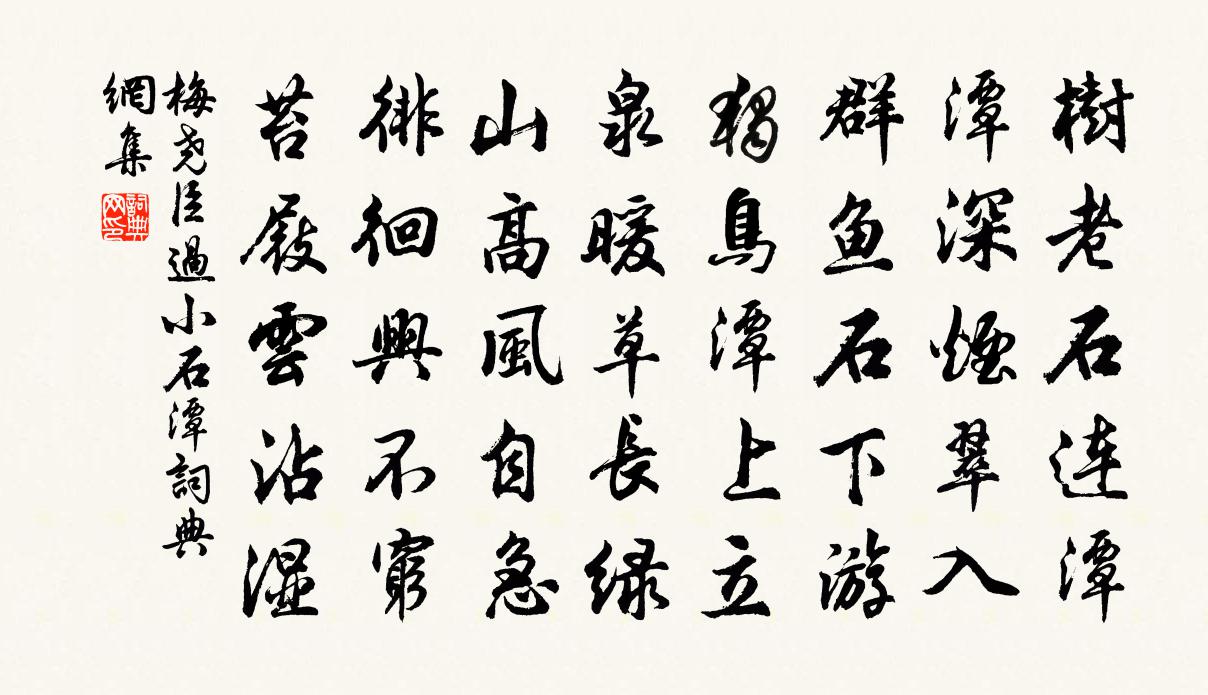 樹老石連潭
潭深煙翠入
群魚石下游
獨鳥潭上立
泉暖草長緑
山高風自急
徘徊興不窮
苔屐雲沾濕
梅堯臣過小石潭詞典
網集
詞典
网印